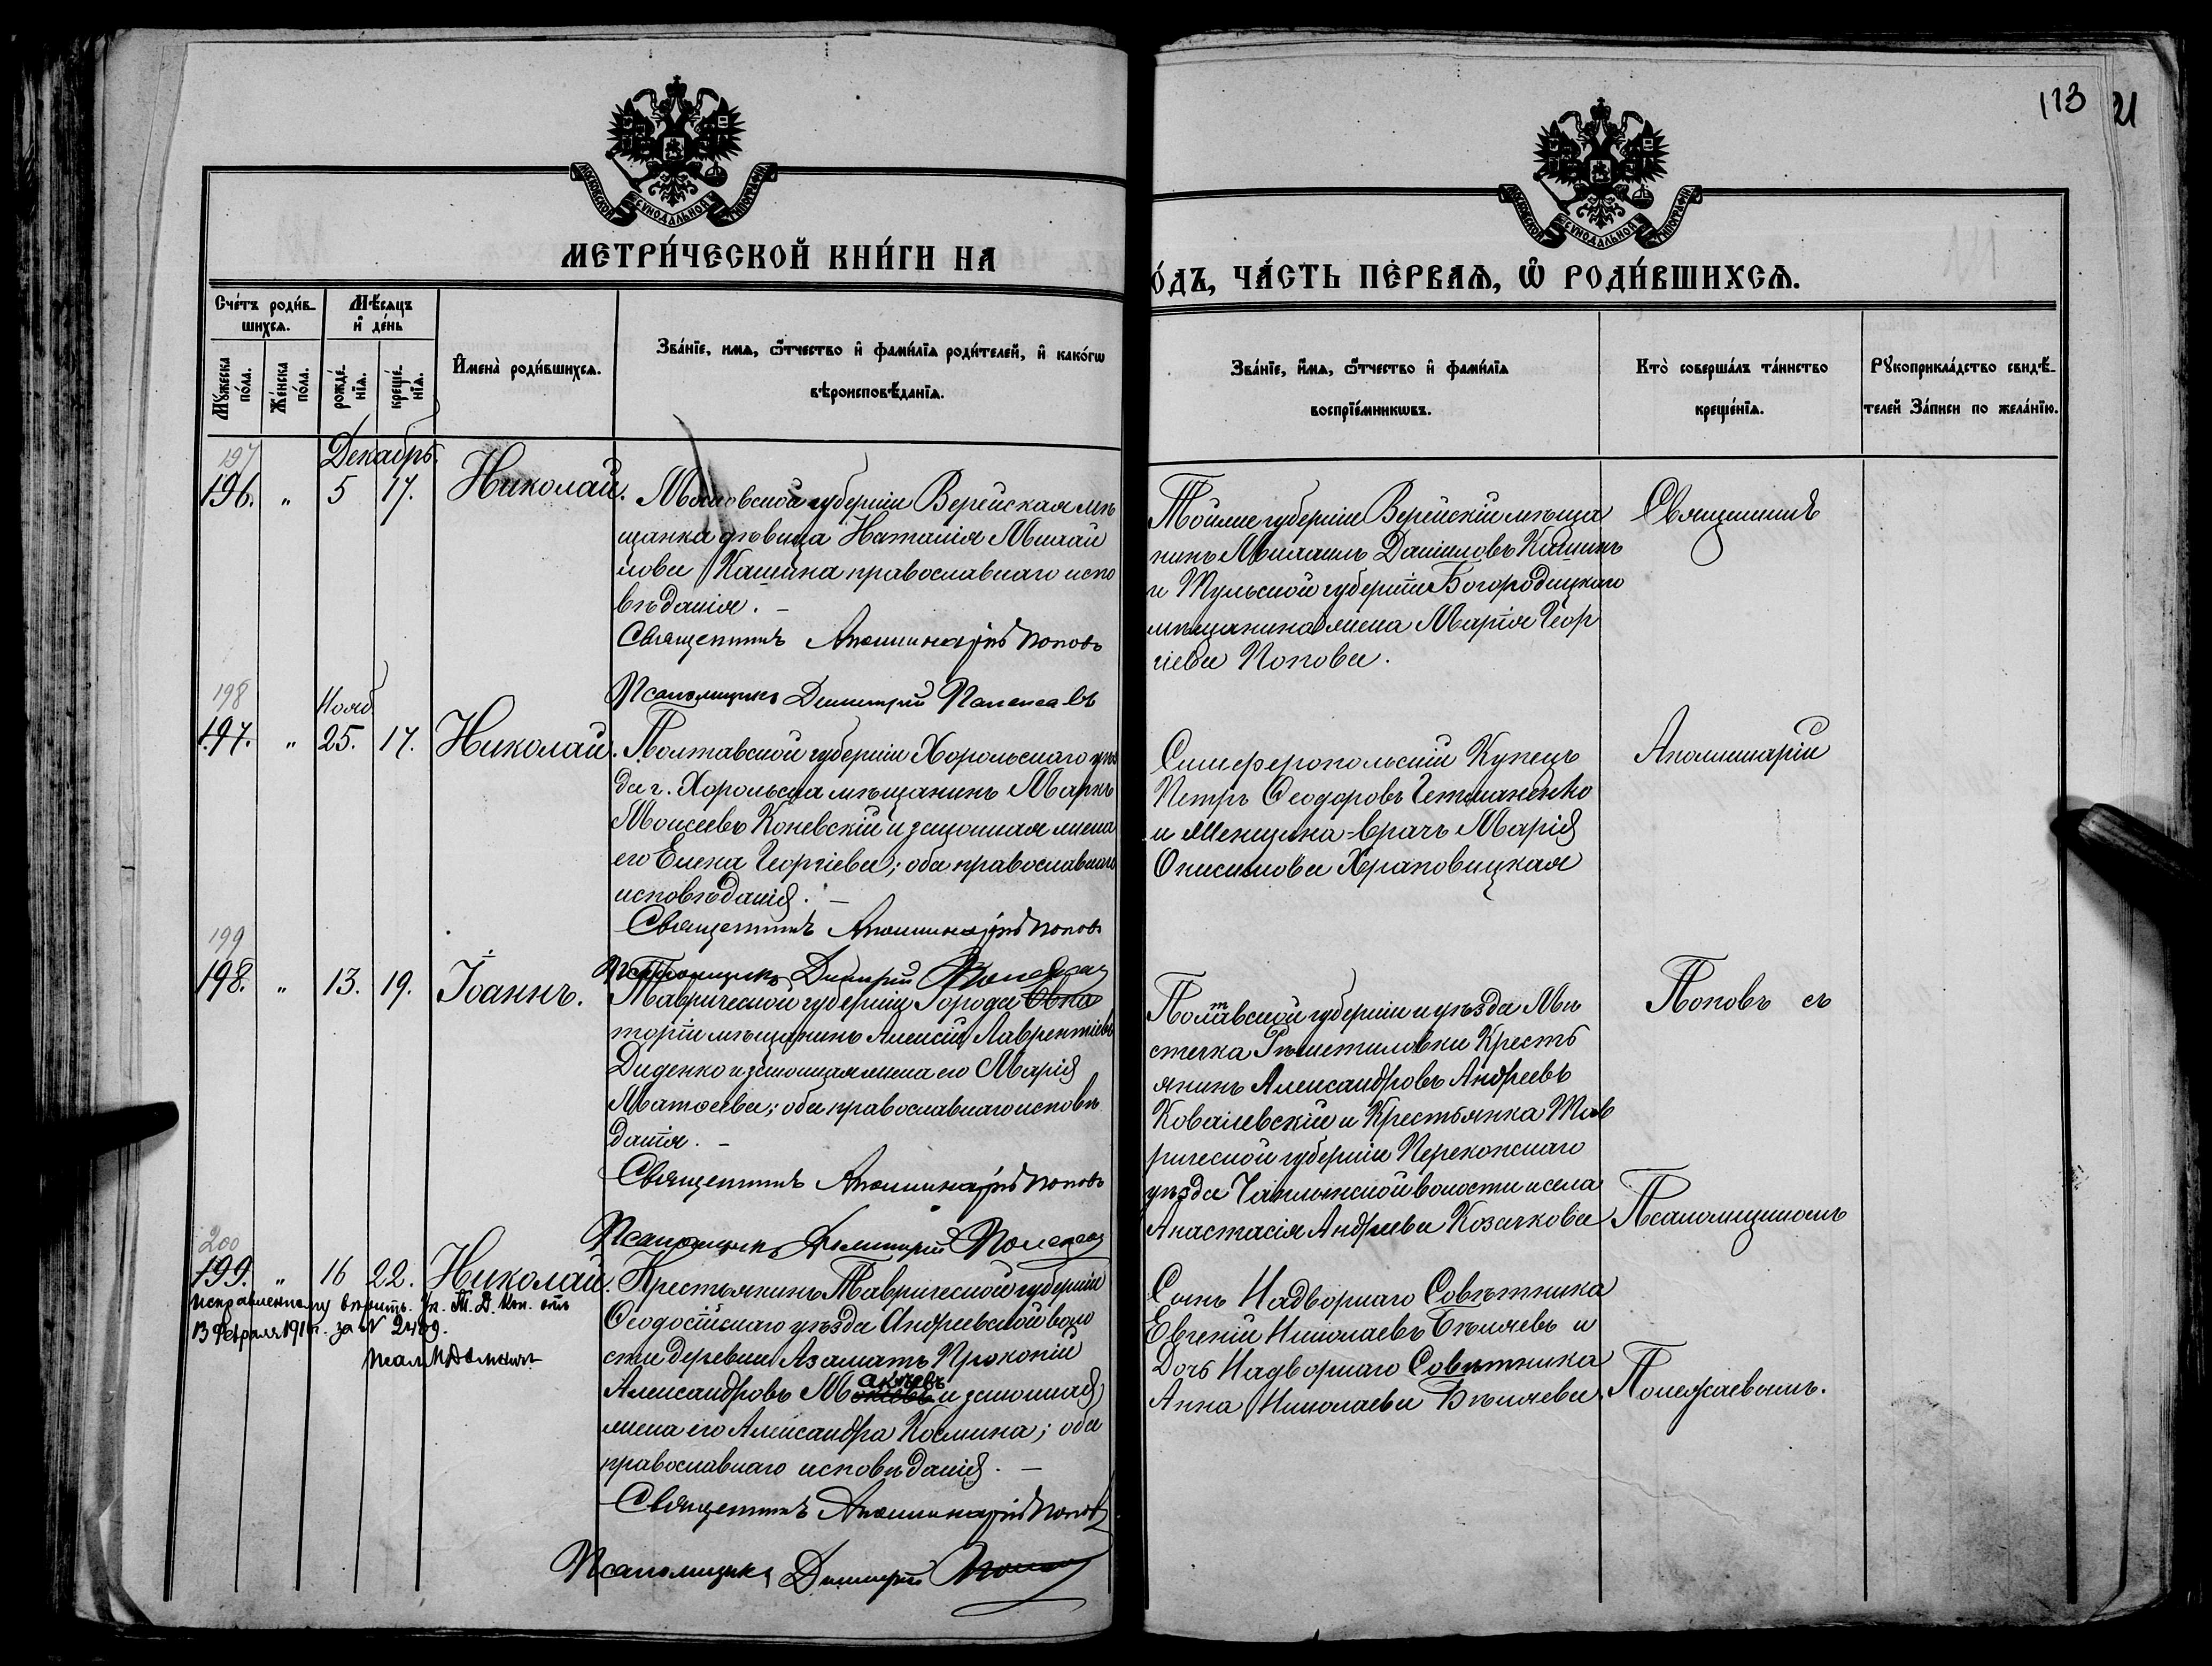 113 21
МОСКОВСКОЙ СѴНОДАЛЬНОЙ ТИПОГРАФІИ
МОСКОВСКОЙ СѴНОДАЛЬНОЙ ТИПОГРАФІИ
МЕТРИ́ЧЕСКОЙ КНИ́ГИ НА
О́ДЪ, ЧА́СТЬ ПЕ́РВАЯ, Ѡ҆ РОДИ́ВШИХСЯ.
Сче́тъ роди́в-
шихся.
Мѣсяцъ
и҆ де́нь
Му́жеска
по́ла.
Же́нска
по́ла.
рожде́-
нїя.
креще́-
нїя.
И҆мена̀ роди́вшихся.
Зва́нїе, имя, ѻ҆́тчество и҆ фами́лїя роди́телей, и҆ како́гѡ
вѣроисповѣ́данїя.
Зва́нїе, и҆́мя, ѻ҆́тчество и҆ фами́лїя
воспрїе́мникѡвъ.
Кто̀ соверша́лъ та́инство
креще́нїя.
Рꙋкоприкла́дство свидѣ́-
телей За́писи по жела́нїю.
197
Декабрь.
196. " 5 17. Николай.
Московской губерніи Верейская мѣ
щанка дѣвица Наталія Михай
лова Кашина православнаго испо
вѣданія. –
Священникъ Аполлинарій Поповъ
Псаломщикъ Димитрій Полежаевъ
Тойже губерніи Верейскій мѣща
нинъ Михаилъ Даниловъ Кашинъ
и Тульской губерніи Богородицкаго
мѣщанина жена Марія Геор
гіева Попова.
Священникъ
198
Нояб.
197. " 25. 17. Николай.
Полтавской губерніи Хорольскаго уѣз
да г. Хорольска мѣщанинъ Маркъ
Моисеевъ Коневскій и законная жена
его Елена Георгіева; оба православнаго
исповѣданія. –
Священникъ Аполлинарій Поповъ
Псаломщикъ Димитрій Полежаев
Симферопольскій Купецъ
Петръ Ѳеодоровъ Гетманенко
и Женщина-врачъ Марія
Онисимова Храповицкая
Аполлинарій
199
198. " 13. 19. Іоаннъ.
Таврической губерніи Города Евпа
торіи мѣщанинъ Алексій Лаврентіевъ
Диденко и законная жена его Марія
Матѳеева; оба православнаго исповѣ
данія. –
Священникъ Аполлинарій Поповъ
Псаломщикъ Димитрій Полежаев
Полтавской губерніи и уѣзда Мѣ
стечка Рѣшетиловки Кресть
янинъ Александровъ Андреевъ
Ковалевскій и Крестьянка Тав
рической губерніи Перекопскаго
уѣзда Чаплинской волости и села
Анастасія Андреева Козачкова
Поповъ съ
Псаломщикомъ
200
199. " 16 22. Николай.
Исправленному вѣрить. Ук. Т. Д. Кон. отъ
13 Февраля 191 г. за № 2489.
Крестьянинъ Таврической губерніи
Ѳеодосійскаго уѣзда Андреевской воло
сти деревни Азаматъ Прокопій
Александровъ Макѣевъ и законная
жена его Александра Космина; оба
православнаго исповѣданія. –
Священникъ Аполлинарій Поповъ
Псаломщикъ Димитрій
Сынъ Надворнаго Совѣтника
Евгеній Николаевъ Бѣляевъ и
Дочь Надворнаго Совѣтника
Анна Николаева Бѣляева.
Полежаевымъ.